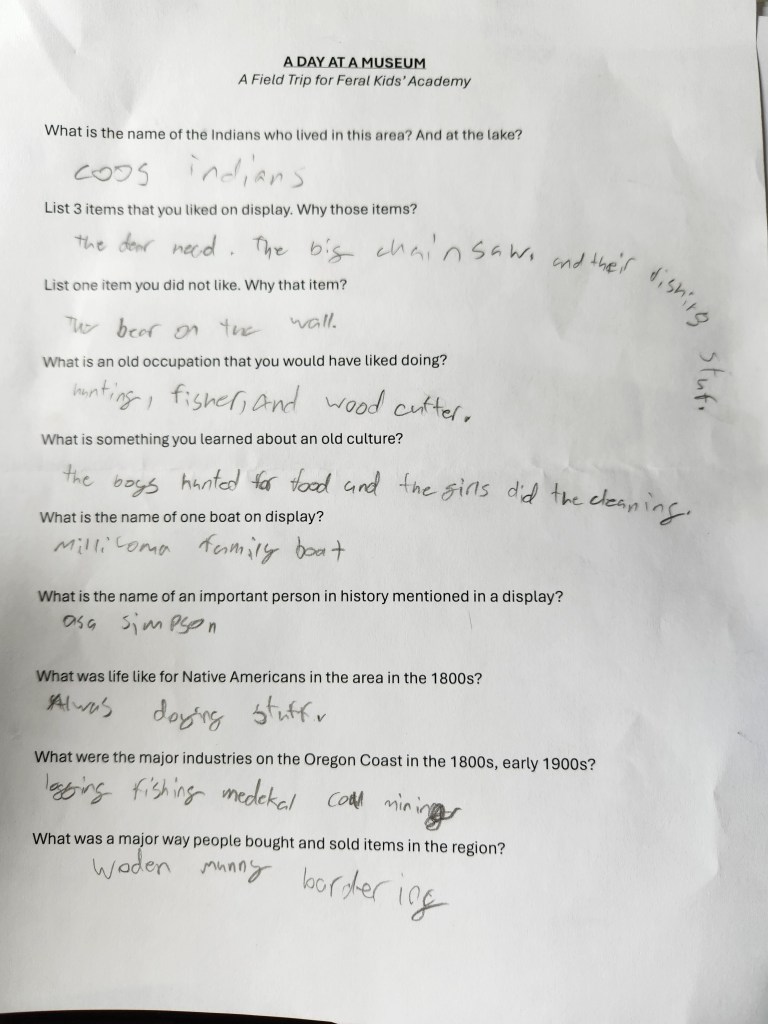 A DAY AT A MUSEUM
A Field Trip for Feral Kids' Academy
What is the name of the Indians who lived in this area? And at the lake?
coos indians
List 3 items that you liked on display. Why those items?
the dear head. The big chainsaw. and their fishing stuf.
List one item you did not like. Why that item?
The bear on the wall.
What is an old occupation that you would have liked doing?
hunting, fisher, And wood cutter.
What is something you learned about an old culture?
the boys hunted for food and the girls did the cleaning.
What is the name of one boat on display?
Millicoma family boat
What is the name of an important person in history mentioned in a display?
asa simpson
What was life like for Native Americans in the area in the 1800s?
Alwas doying stuff.
What were the major industries on the Oregon Coast in the 1800s, early 1900s?
logging fishing medekal coal mining
What was a major way people bought and sold items in the region?
Woden munny bordering